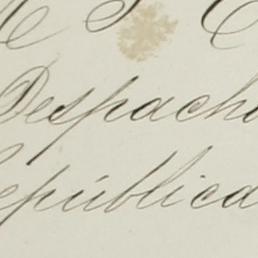 Despach
epública